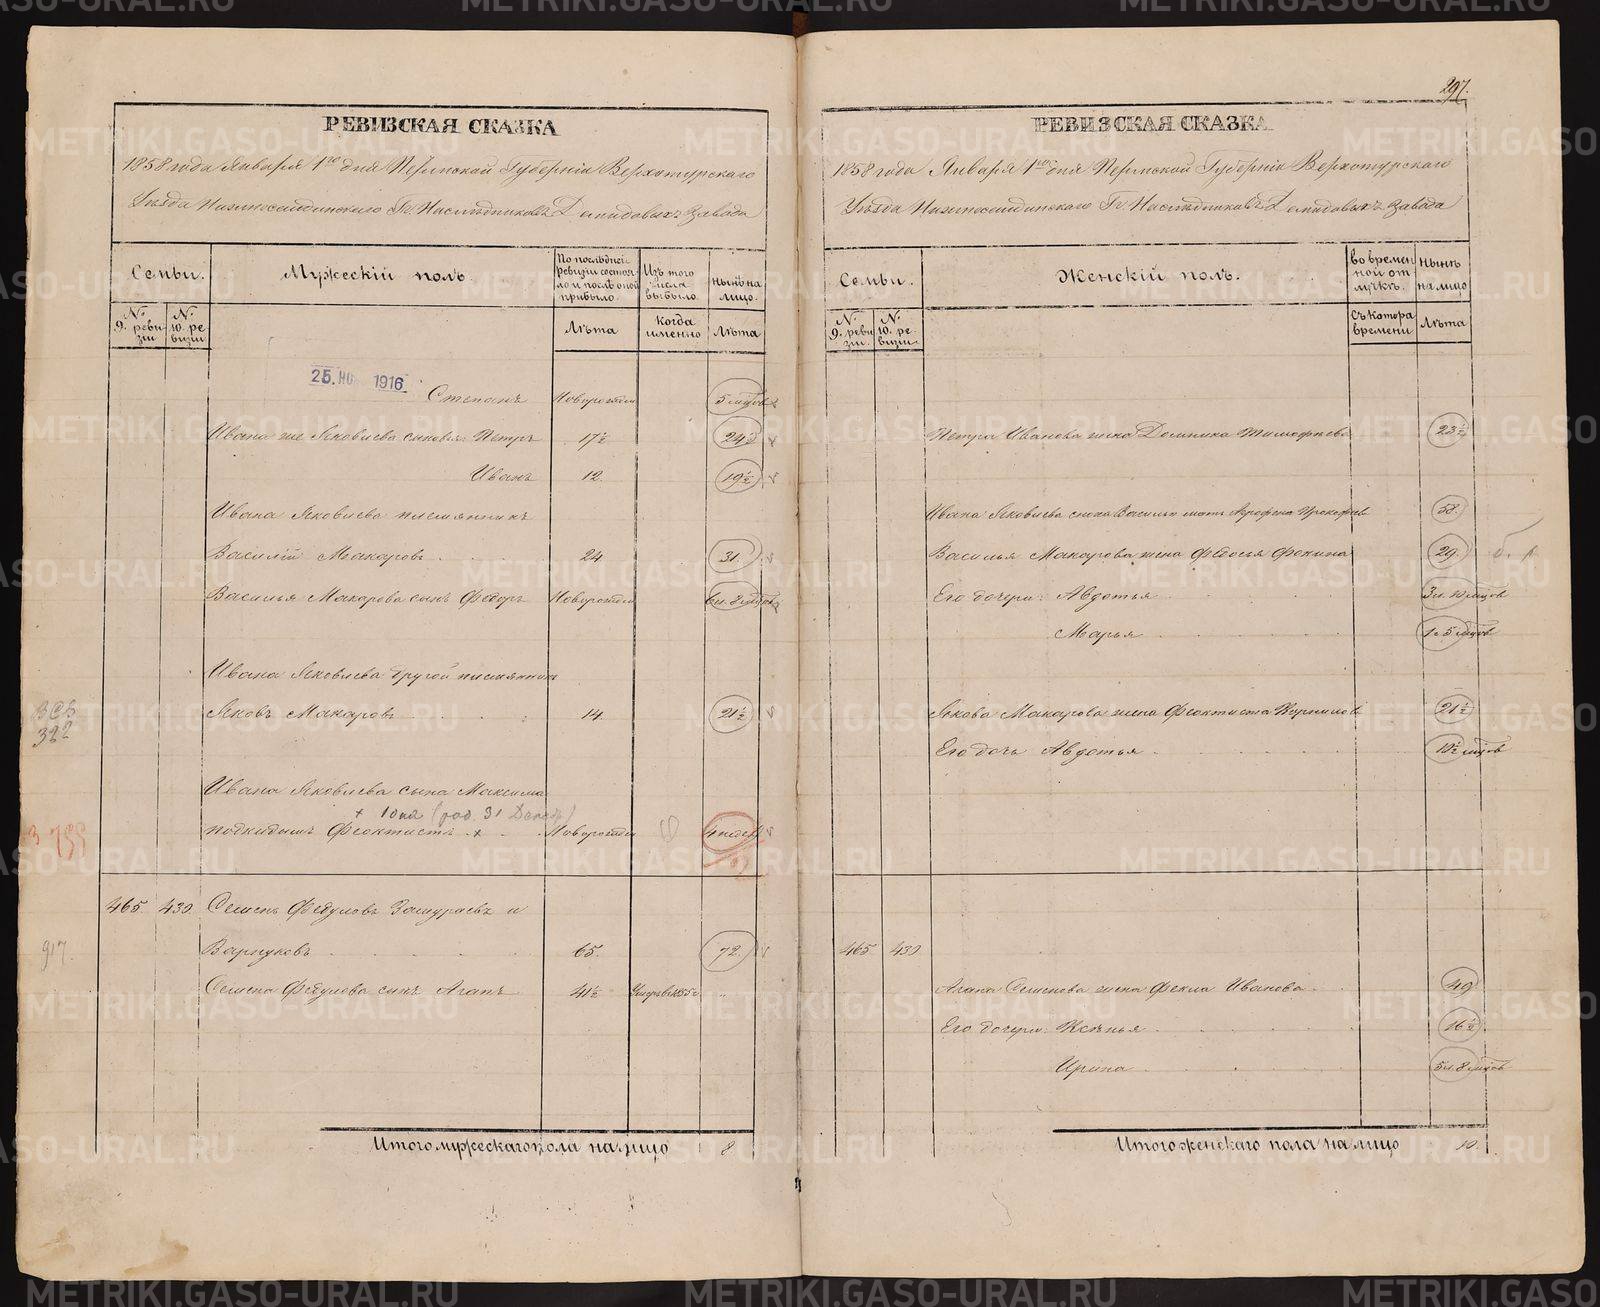 РЕВИЗСКАЯ СКАЗКА
1858 года Января 1го дня Пермской Губернiи Верхотурскаго
Уѣзда Нижнесалдинскаго Гг. Наслѣдниковъ Демидовыхъ завода
Семьи.
Мужескiй полъ.
По послѣдней ревизiи состояло и послѣ оной прибыло.
Изъ того числа выбыло.
нынѣ на лицо.
№ 9. ревизiи
№ 10. ревизiи
Лѣта
Когда именно
Лѣта
25. НО 1916
Степанъ новорожден 5 мцовъ
Ивана же Яковлева сыновья Петръ 17½ 24½
Иванъ 12. 19½
Ивана Яковлева племянникъ
Василiй Макаровъ 24. 31.
Василья Макарова сынъ Федоръ Новорожден 6 л. 8 мцовъ
Ивана Яковлева другой племянникъ
Яковъ Макаровъ 14. 21½
322
Ивана Яковлева сына Максима
+ (род. 31
подкидышъ Феоктистъ + Новорожден 4 недел
465. 430. Семенъ Федуловъ и
65. 72.
917.
Семена Федулова сынъ Агапъ 41½ Умеръ в 1855 г.
Итого мужескаго пола на лицо 8
297.
РЕВИЗСКАЯ СКАЗКА
1858 года Января 1го дня Пермской Губернiи Верхотурскаго
Уѣзда Нижнесалдинскаго Гг. Наслѣдниковъ Демидовыхъ завода
Семьи.
Женскiй полъ.
во временной отлучкѣ.
нынѣ на лицо
№ 9. ревизiи.
№ 10. ревизiи.
Съ котора времени
Лѣта
Петра Иванова жена Домника Тимофѣева 23½
Ивана Яковлева сноха Василья мать Агрофена Прокофьев 58.
Василья Макарова жена Федосья Фокина 29.
Его дочери: Авдотья 3 л. 10 мцов
Марья 1 г 5 мцов
Якова Макарова жена Феоктиста Корнилов 21½
Его дочь Авдотья 10½ мцов
465 430
Агапа Семенова жена Фекла Иванова 49
Его дочери: Ксенья 16½
Ирина 5 л. 8 мцов
Итого женскаго пола на лицо 10.
METRIKI.GASO-URAL.RU